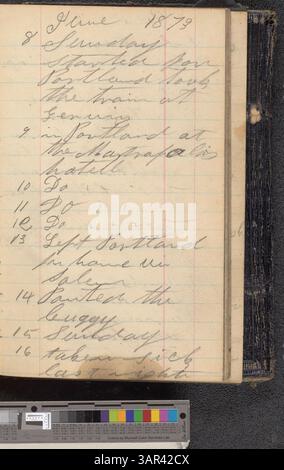 June 1879
8 Sunday
started for
Portland took
the train at
Gervais
9 in Portland at
the Metropolis
hotell
10 Do
11 Do
12 Do
13 Left Portland
for home via
Salem
14 Painted the
buggy
15 Sunday
16 taken sick
last night
3AR42CX